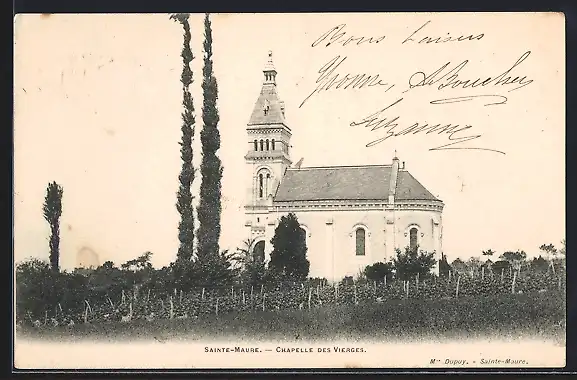 Bons baisers
Yvonne, A Boucher
Suzanne
SAINTE-MAURE. — CHAPELLE DES VIERGES.
Mme Dupuy, - Sainte-Maure.